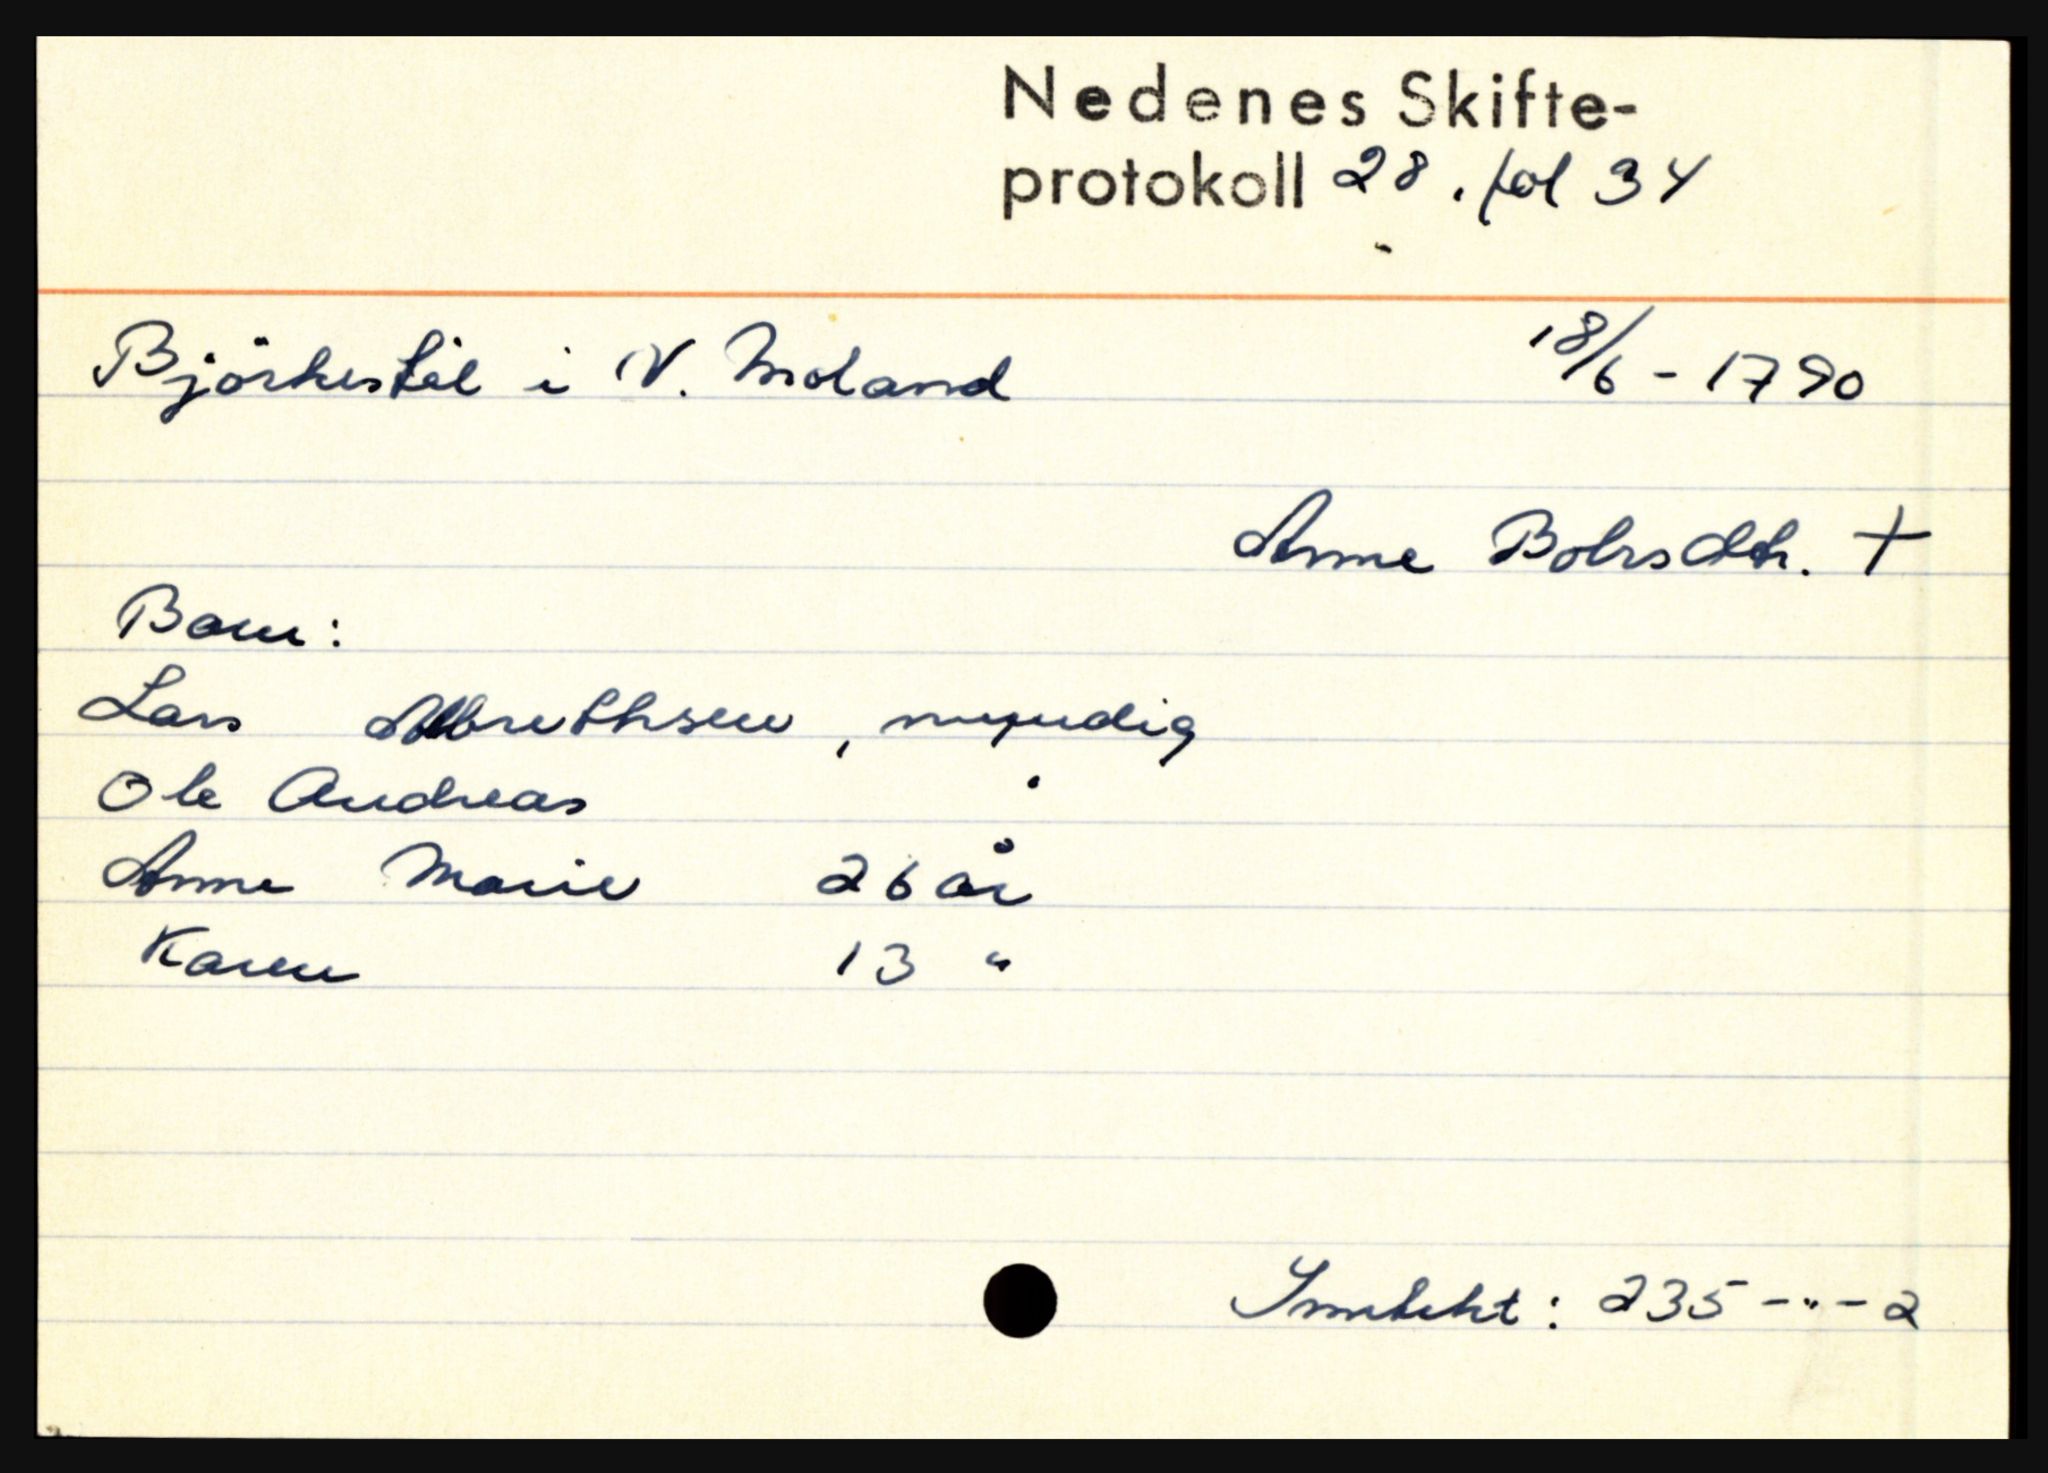 Nedenes Skifte-
protokoll 28. fol 34
Björkestöl i V. Moland 18/6 - 1790
Anne Bohrsdtr. +
Barn:
Lars Albrethsen, myndig
Ole Andreas
Anne Marie 26 år
Karen 13 "
Inntekt: 235 - " - 2